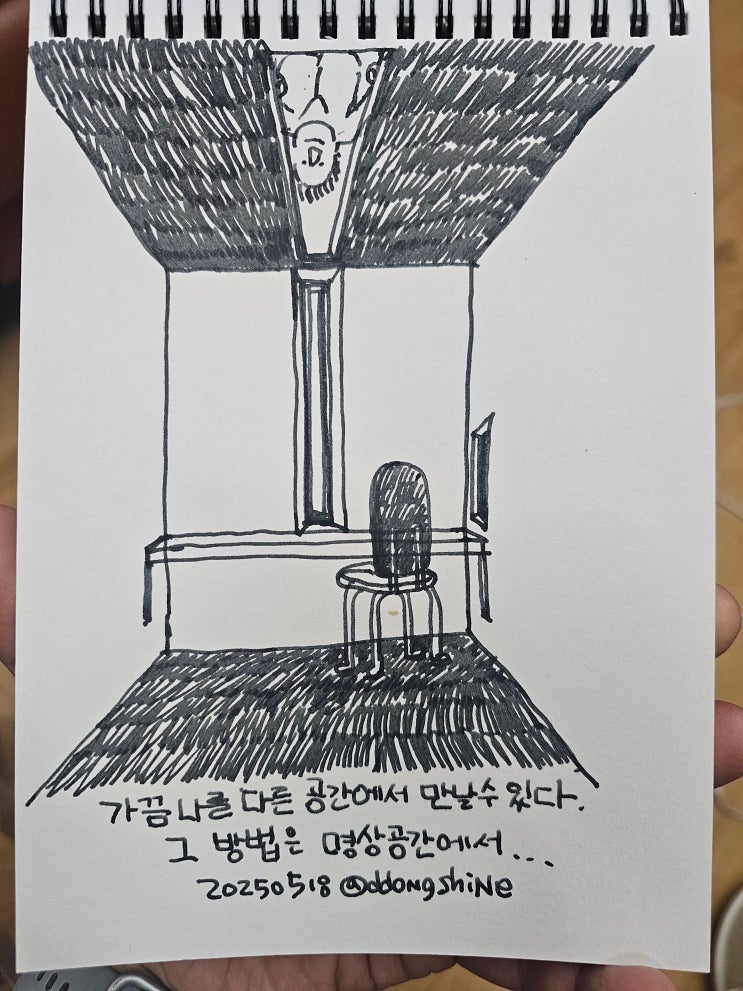 가끔 나를 다른 공간에서 만날수 있다.
그 방법은 명상공간에서...
20250518 @ddongshine